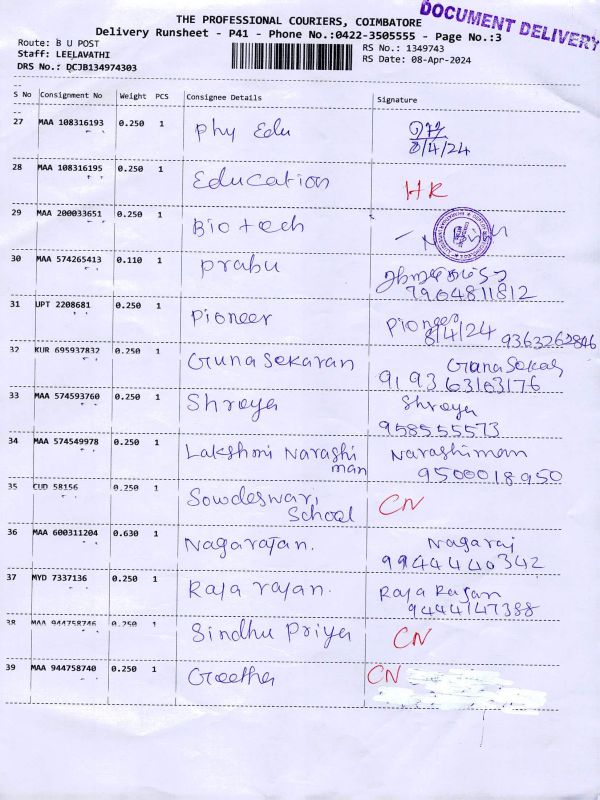 THE PROFESSIONAL COURIERS, COIMBATORE
DOCUMENT DELIVERY
Delivery Runsheet - P41 - Phone No.:0422-3505555 - Page No.:3
Route: B U POST
RS No.: 1349743
Staff: LEELAVATHI
RS Date: 08-Apr-2024
DRS No.: DCJB134974303
S No Consignment No Weight PCS Consignee Details Signature
27 MAA 108316193 0.250 1 Phy Edu
8/4/24
28 MAA 108316195 0.250 1 Education HR
29 MAA 200033651 0.250 1 Bio tech
30 MAA 574265413 0.110 1 Prabu
7904811812
31 UPT 2208681 0.250 1 Pioneer Pioneer
8/4/24 9363262846
32 KUR 695937832 0.250 1 Gunasekaran Gunasekar
919363163176
33 MAA 574593760 0.250 1 Shreya Shreya
958555573
34 MAA 574549978 0.250 1 Lakshmi Narashi Narashiman
man 9500018950
35 CUD 58156 0.250 1 Sowdeswari CN
School
36 MAA 600311204 0.630 1 Nagarajan. Nagaraj
9944440342
37 MYD 7337136 0.250 1 Raja rajan. Raja Rajan
9444147388
38 MAA 944758746 0.250 1 Sindhu Priya CN
39 MAA 944758740 0.250 1 Geetha CN